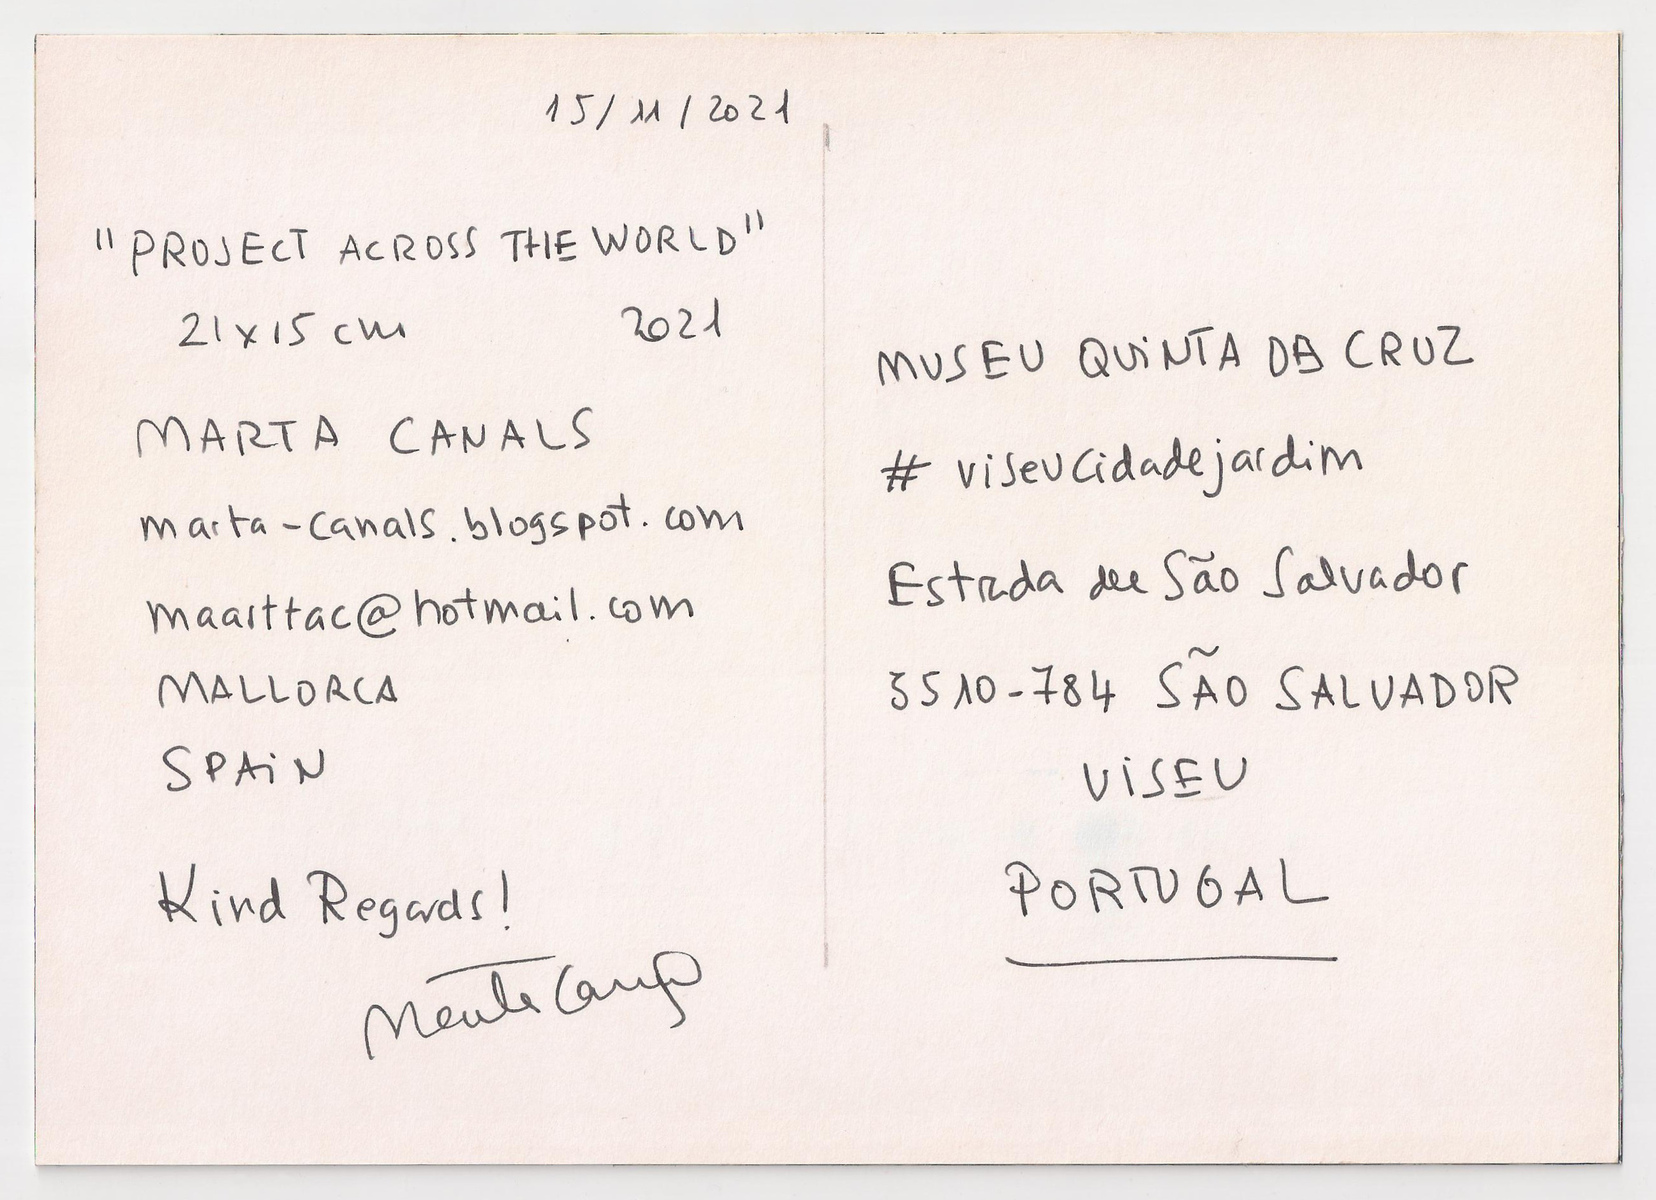 15/11/2021
"PROJECT ACROSS THE WORLD"
21x15 cm 2021
MARTA CANALS
marta-canals.blogspot.com
maarttac@hotmail.com
MALLORCA
SPAiN
Kind Regards!
MUSEU QUiNTA DA CRUZ
# viseucidadejardim
Estrada de São Salvador
3510-784 SÃO SALVADOR
ViSEU
PORTUGAL